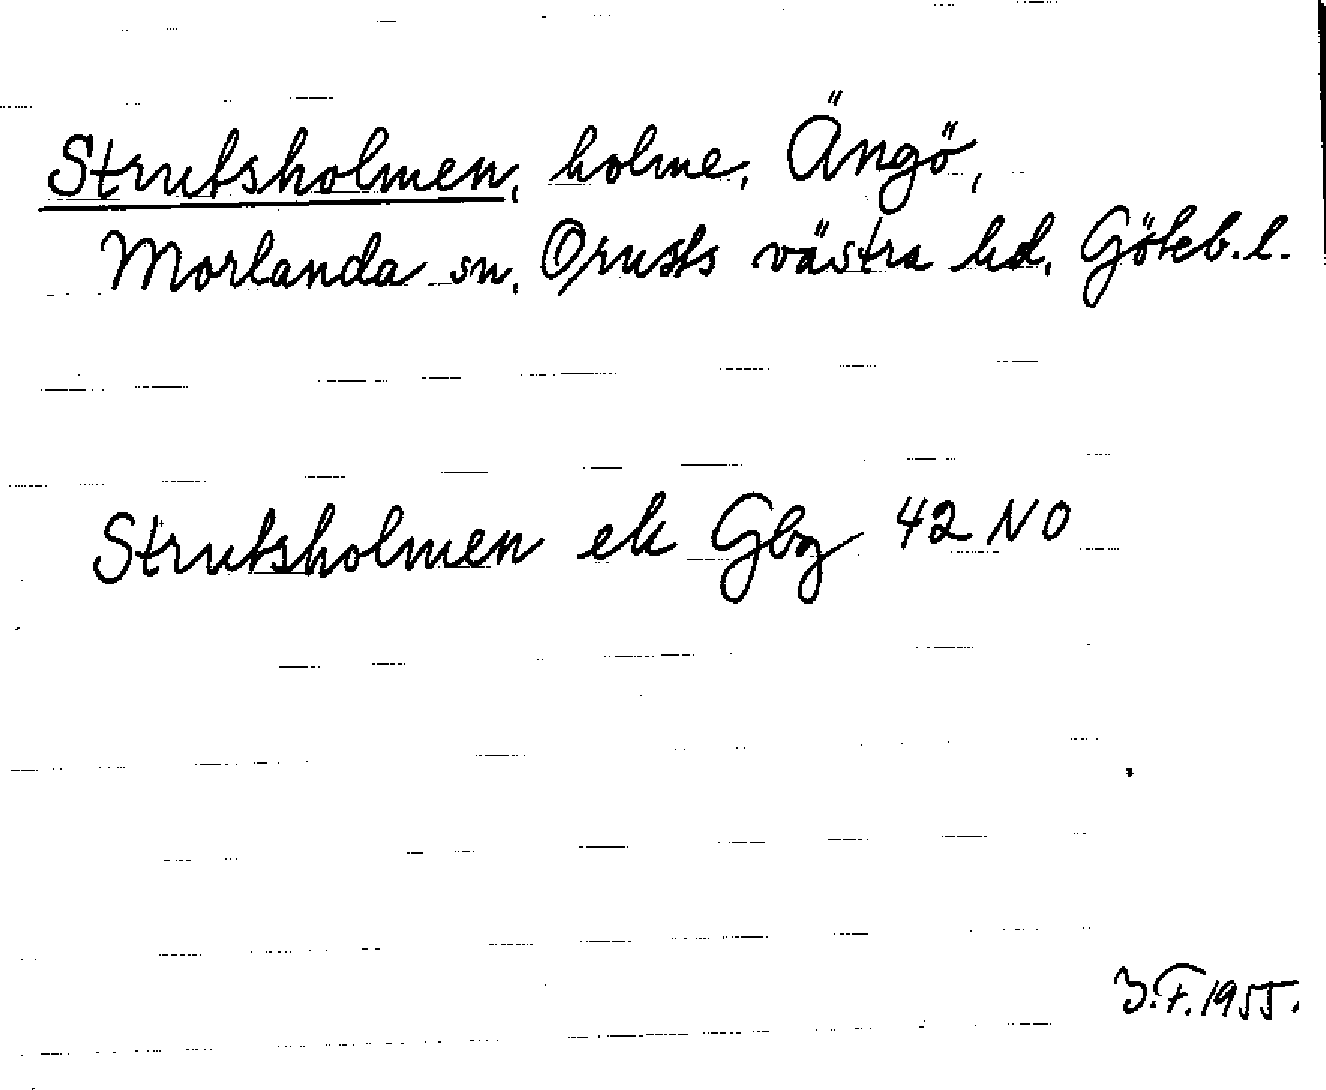 Strutsholmen, holme, Ängö,
Morlanda sn, Orusts västra hd, Göteb. l.
Strutsholmen ek Gbg 42 NO
J.F. 1955.